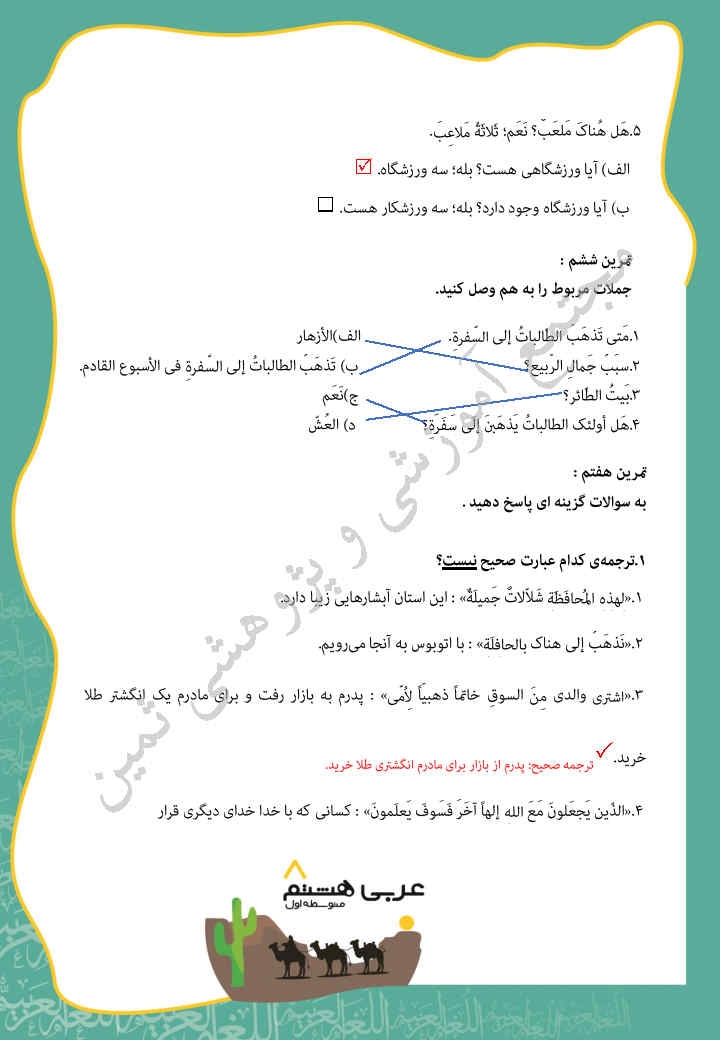 ۵.هَل هُناکَ مَلعَبٌ؟ نَعَم؛ ثَلاثَةُ مَلاعِبَ.
الف) آیا ورزشگاهی هست؟ بله؛ سه ورزشگاه.
ب) آیا ورزشگاه وجود دارد؟ بله؛ سه ورزشکار هست.
تمرین ششم :
جملات مربوط را به هم وصل کنید.
۱.مَتی تَذهَبُ الطّالباتُ إلی السّفرةِ. الف)الأزهار
۲.سبَبُ جَمالِ الرّبیع؟ ب) تَذهَبُ الطالباتُ إلی السّفرةِ فی الأسبوع القادم.
۳.بَیتُ الطّائر؟ ج)نَعَم
۴.هَل أولئک الطالباتُ یَذهَبنَ إلی سَفَرَةٍ؟ د) العُشّ
تمرین هفتم :
به سوالات گزینه ای پاسخ دهید .
۱.ترجمه‌ی کدام عبارت صحیح نیست؟
۱.«لهذه المُحافَظَة شَلاّلاتٌ جَمیلَةٌ» : این استان آبشارهایی زیبا دارد.
۲.«نَذهَبُ إلی هناک بالحافلَة» : با اتوبوس به آنجا می‌رویم.
۳.«اشتری والدی مِنَ السوقِ خاتماً ذهبیّاً لِأمّی» : پدرم به بازار رفت و برای مادرم یک انگشتر طلا
خرید. ترجمه صحیح: پدرم از بازار برای مادرم انگشتری طلا خرید.
۴.«الذّین یَجعَلونَ مَعَ الله إلهاً آخَرَ فَسَوفَ یَعلَمونَ» : کسانی که با خدا خدای دیگری قرار
مجتمع آموزشی و پژوهشی ثمین
عربی هشتم
متوسطه اول